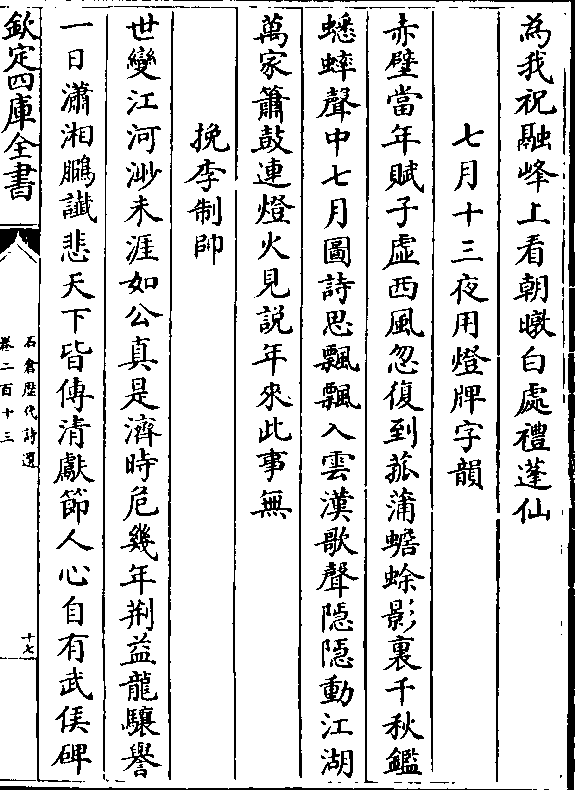 為我祝融峰上看朝暾白處禮蓬仙
七月十三夜用燈牌字韻
赤壁當年賦子虛西風忽復到菰蒲蟾蜍影裏千秋鑑
蟋蟀聲中七月圖詩思飄飄入雲漢歌聲隠隠動江湖
萬家簫鼓連燈火見説年來此事無
挽李制帥
世變江河渺未涯如公真是濟時危幾年荆益龍驤譽
一日瀟湘鵩讖悲天下皆傳清獻節人心自有武侯碑
欽定四庫全書
石倉歴代詩選
卷二百十三
十七